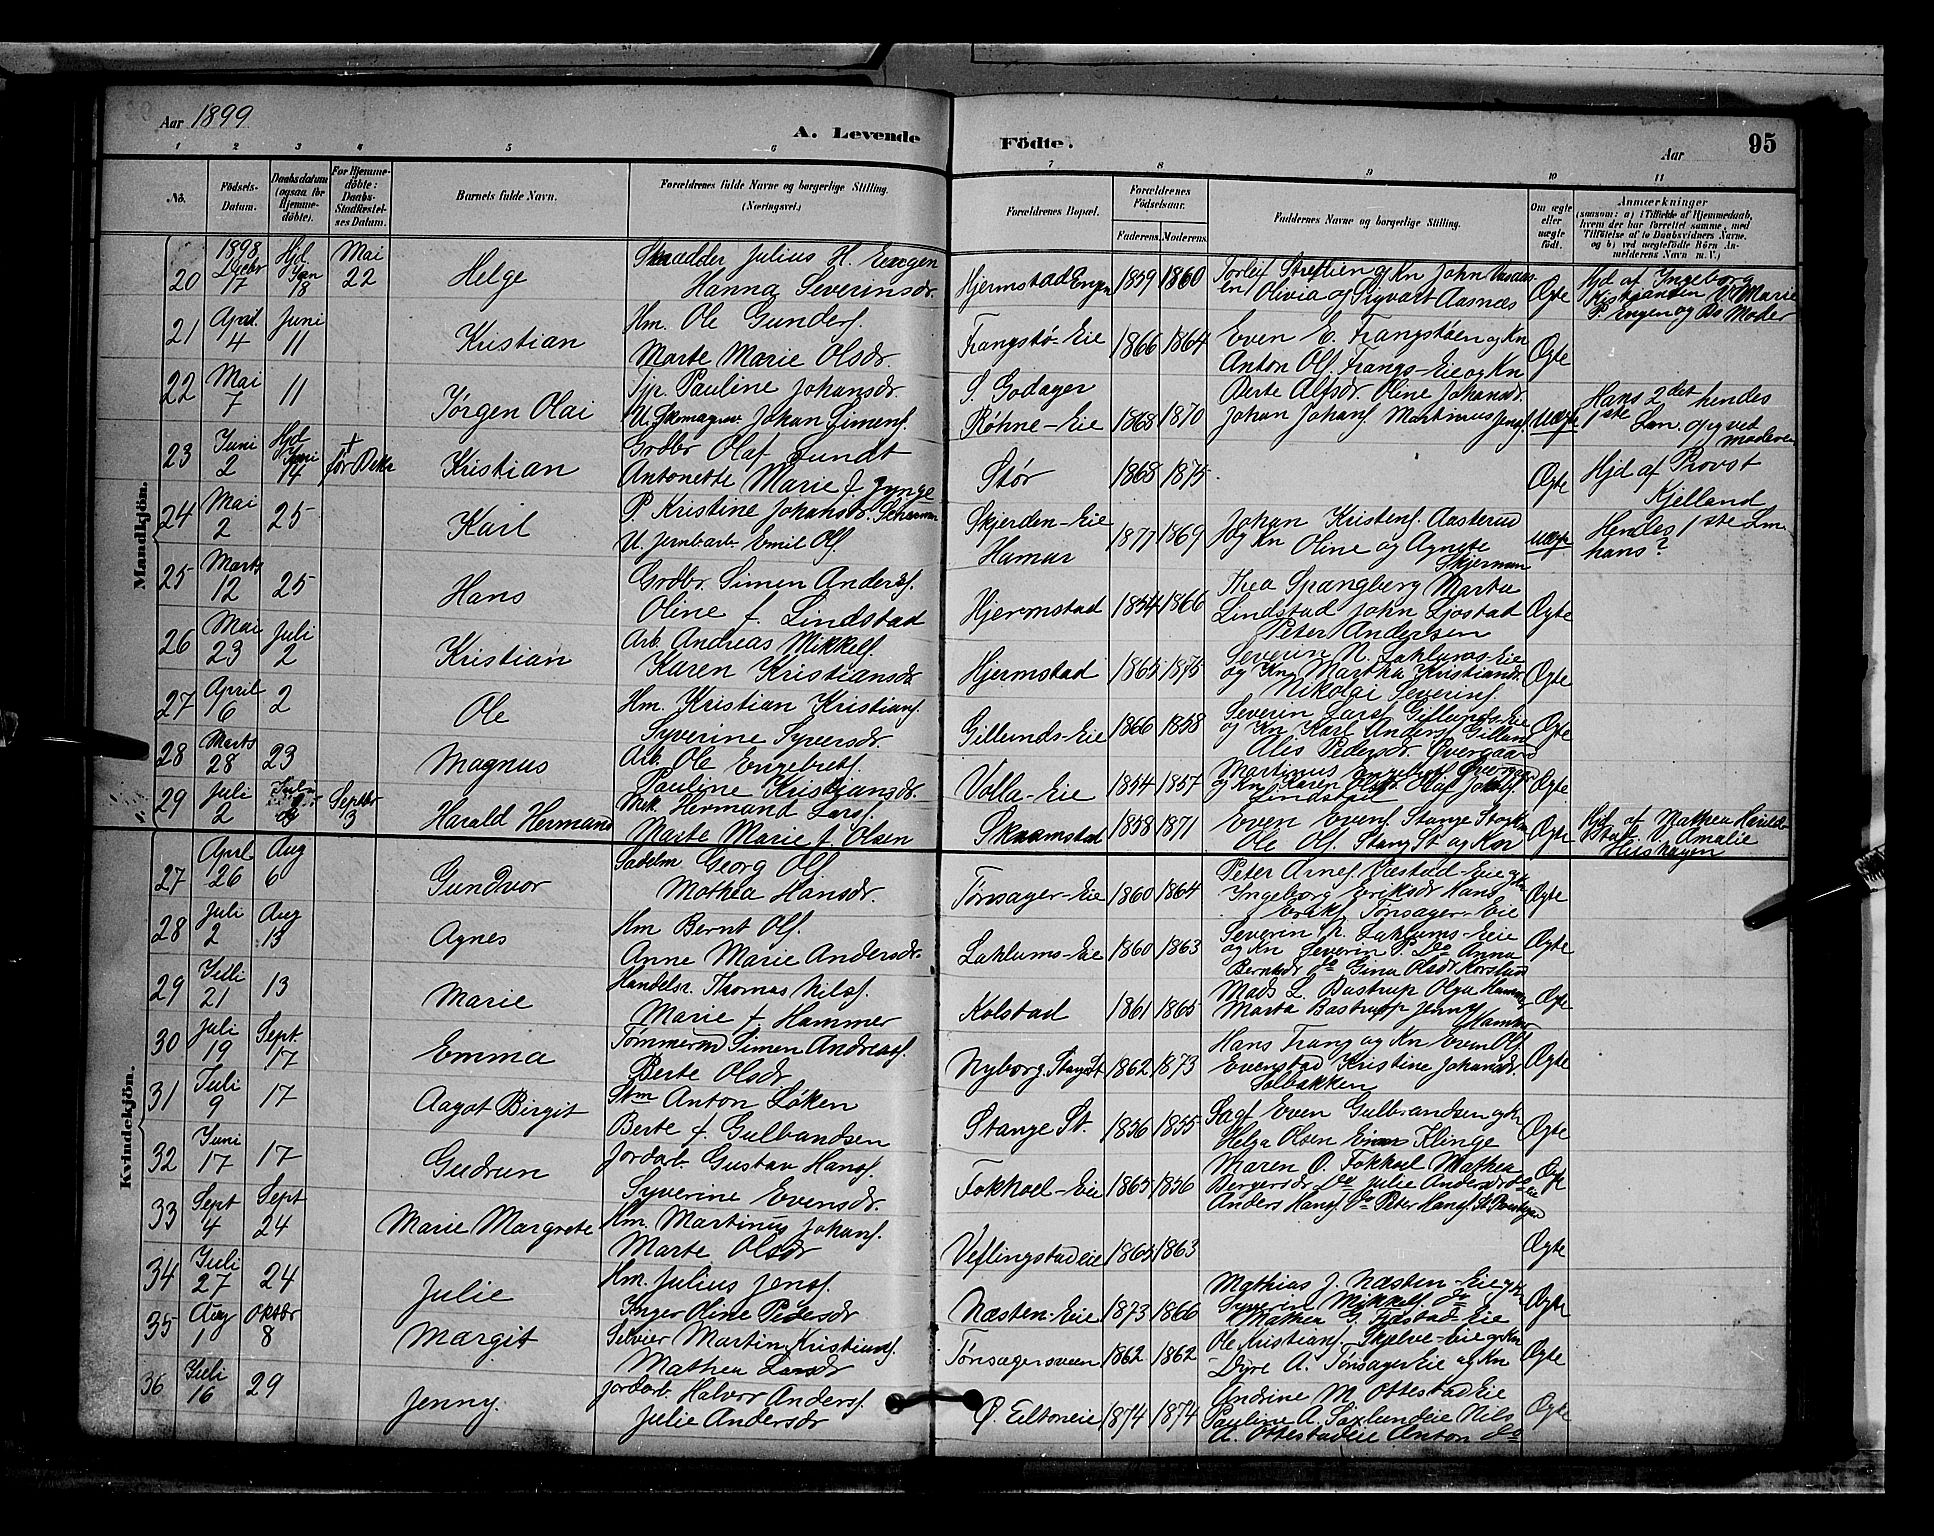 Aar 1899
A. Levende
Födte.
Aar
95
1 2 3 4 5 6 7 8 9 10 11
No.
Födsels-Datum.
Daabsdatum (ogsaa for Hjemmedöbte).
For Hjemmedöbte: Daabs-Stadfæstelses Datum.
Barnets fulde Navn.
Forældrenes fulde Navne og borgerlige Stilling.
(Næringsvei.)
Forældrenes Bopæl.
Forældrenes Födselsaar.
Faderens. Moderens.
Faddernes Navne og borgerlige Stilling.
Om ægte eller uægte født.
Anmærkninger
(saasom: a) i Tilfælde af Hjemmedaab, hvem der har forrettet samme, med Tilföielse af to Daabsvidners Navne, og b) ved uægtefödte Börn Anmelderens Navn m. V.)
Mandkjön.
20 1898 Decbr 17 Hjd. Jan 18 Mai 22 Helge
Skrædder Julius H. Engen
Hanna Severinsdr.
Hjermstad Engen 1859 1860
Olivia og Sigvart Aasnæs
Ægte
Hjd af Ingeborg
Kristiansen V. Marie
P. Engen og Bs Moder
21 April 4 Juni 11 Kristian
Hm. Ole Gunders.
Marte Marie Olsdr.
Frangstø-Eie 1866 1864
Even E. Frangstøen og Kn
Anton Ols. Frangs-Eie og Kn
Ægte
22 Mai 7 11 Jørgen Olai
Tjp. Pauline Johansdr.
U. Skomagersv. Johan Simens.
S. Godager
Røhne-Eie 1868 1870
Berte Alfsdr. Oline Johansdr.
Johan Johans. Martinus Jens.
Uægte
Hans 2det hendes
1ste Lm. opg ved
moderen
23 Juni 2 Hjd Juni 14 † før Bekr Kristian
Grdbr Olaf Jundt
Antonette Marie f. Jynge
Stør 1868 1875
Ægte
Hjd af Provst
Kjelland
24 Mai 2 25 Karl
P. Kristine Johansdr. Skjerman
U. Jernbarb. Emil Ols.
Skjerden-Eie
Hamar 1877 1869
Johan Kristens. Aasterud
og Kn Oline og Agnete
Skjerman
uægte
Hendes 1ste Lm.
hans?
25 Marts 12 25 Hans
Grdbr. Simen Anders.
Oline f. Lindstad
Hjermstad 1854 1866
Thea Spangberg Marta
Lindstad John Ljostad
Peter Andersen
Ægte
26 Mai 23 Juli 2 Kristian
Arb. Andreas Mikkels.
Karen Kristiansdr.
Hjermstad 1865 1875
Severin N. Lahlums-Eie
og Kn Martha Kristiansdr.
Nikolai Severins.
Ægte
27 April 6 2 Ole
Hm. Kristian Kristians.
Syverine Syversdr.
Gillunds-Eie 1866 1858
Severin Lars. Gillunds-Eie
og Kn Karl Anders. Gillund
Alis Pedersdr. Overgaard
Ægte
28 Marts 28 23 Magnus
Arb. Ole Engebrets.
Pauline Kristiansdr.
Volla-Eie 1854 1857
Martinus Engebrets.
og Kn Karen Olsdr. Olaf Jakobs.
Lindstad
Ægte
29 Juli 2 Juli Septbr 3 Harald Hermand
Hermand Lars.
Marte Marie f. Olsen
Skaamstad 1858 1871
Even Evens. Stange
Ole Ols. Stang St og Kn
Ægte
Hjd af Mathea
V. Amalie
Hushagen
Kvindekjön.
27 April 26 Aug 6 Gundvor
Sadelm Georg Ols.
Mathea Hansdr.
Tønsager-Eie 1860 1864
Peter Arnes. Væstad-Eie og Kn
Ingeborg Eriksdr Hans
Eriks. Tønsager-Eie
Ægte
28 Juli 2 Aug 13 Agnes
Hm Bernt Ols.
Anne Marie Andersdr.
Lahlums-Eie 1860 1863
Severin P. Lahlums-Eie
og Kn Severin P. Do Anna
Berntsdr do Gina Olsdr Korslund
Ægte
29 Juli 21 13 Marie
Handelsr. Thomas Nils.
Marie f. Hammer
Kolstad 1861 1865
Mads L. Bastrup Olga Hammer
Marta Bastrup Jenny
Hammer
Ægte
30 Juli 19 Sept. 17 Emma
Tømmermd Simen Andreas.
Berte Olsdr
Nyborg. Stange St. 1862 1873
Hans Frang og Kn Even Ols.
Evenstad Kristine Johansdr.
Solbakken
Ægte
31 Juli 9 17 Aagot Birgit
Stm Anton Løken
Berte f. Gulbandsen
Stange St. 1856 1855
Sagf Even Gulbrandsen og Kn
Helga Olsen Einar Klinge
Ægte
32 Juni 17 17 Gudrun
Jordarb. Gustav Hans.
Syverine Evensdr.
Fokhoel-Eie 1865 1856
Maren O. Fokhoel Mathea
Bergersdr Do Julie Andersdr do
Anders Hans. Do Peter Hans.
Ægte
33 Sept 4 Sept 24 Marie Margrete
Hm. Martinus Johans.
Marte Olsdr
Veflingstadeie 1865 1863
Ægte
34 Juli 27 24 Julie
Hm. Julius Jens.
Inger Oline Pedersdr
Næsten-Eie 1873 1866
Mathias J. Næsten-Eie og Kn
Syverin Mikkels. do
Mathea G. Fjæstad-Eie
Ægte
35 Aug 1 Oktbr 8 Margit
Selveier Martin Kristians.
Mathea Larsdr
Tønsagersveen 1862 1862
Ole Kristians. Skjelve-Eie og Kn
Dyre A. Tønsager Eie og Kn
Ægte
36 Juli 16 29 Jenny.
Jordarb. Halvor Anders.
Julie Andersdr
Ø. Eiltoneie 1874 1874
Andrine M. Ottestad Eie
Pauline A. Saxlundeie Nils
A. Ottestadeie Anton do
Ægte